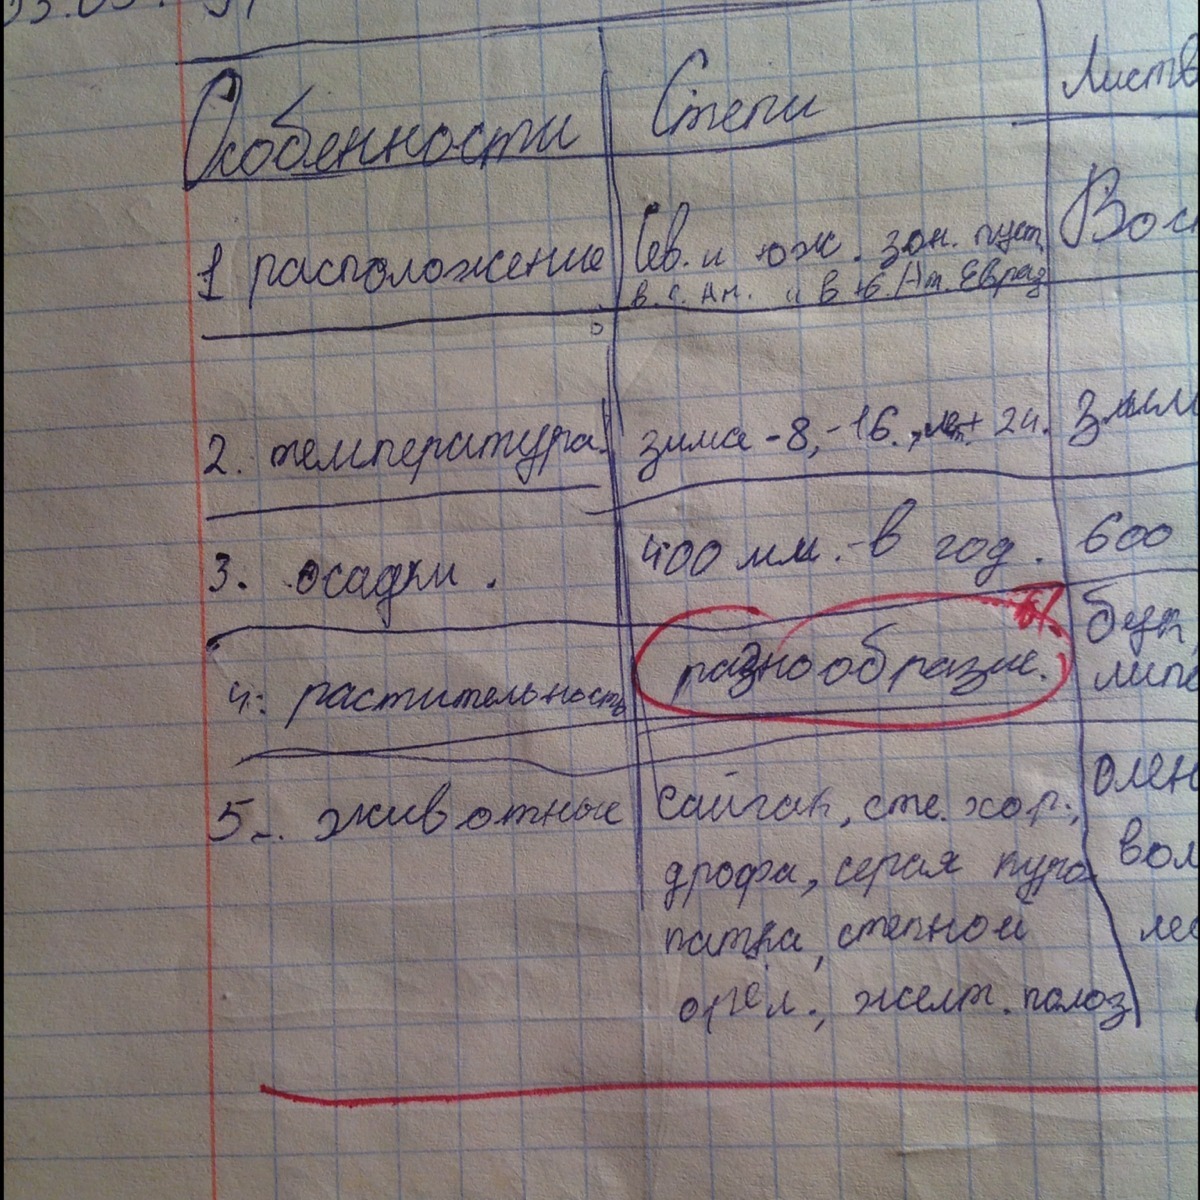 Особенности Степи Листв
1 расположение Сев. и юж. зон. пуст Вос
в. с. Ам. и в Ю. Ам. Евраз
2. температура. зима -8, -16., лет. + 24. Зим
3. осадки. 400 мм. в год. 600
4. растительность разнообразие. бук,
липа
5. животные сайгак, сте. хор., олен
дрофа, серая куро вол
патка, степной лес
орёл., желт. полоз